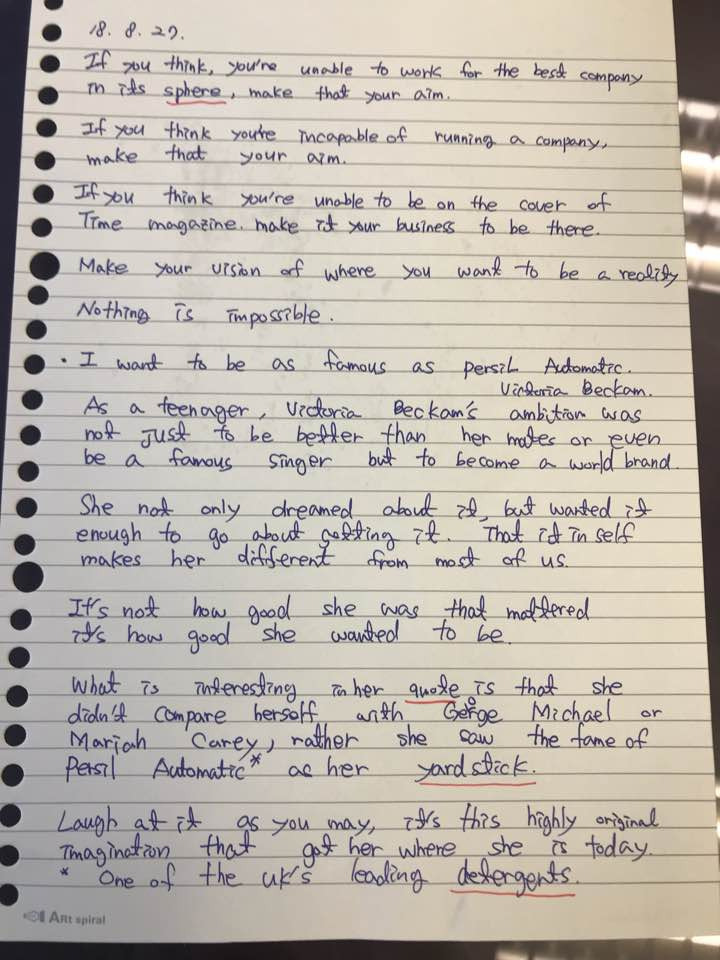 18. 8. 27.
If you think, you're unable to work for the best company
in its sphere, make that your aim.
If you think you're incapable of running a company,
make that your aim.
If you think you're unable to be on the cover of
Time magazine. make it your business to be there.
Make your vision of where you want to be a reality
Nothing is impossible.
· I want to be as famous as persil Automatic.
Victoria Beckam.
As a teenager, Victoria Beckam's ambition was
not just to be better than her mates or even
be a famous singer but to become a world brand.
She not only dreamed about it, but wanted it
enough to go about getting it. That it in self
makes her different from most of us.
It's not how good she was that mattered
it's how good she wanted to be.
What is interesting in her quote is that she
didn't compare herself with George Michael or
Mariah Carey, rather she saw the fame of
Persil Automatic* as her yardstick.
Laugh at it as you may, it's this highly original
imagination that got her where she is today.
* One of the uk's leading detergents.
Art spiral